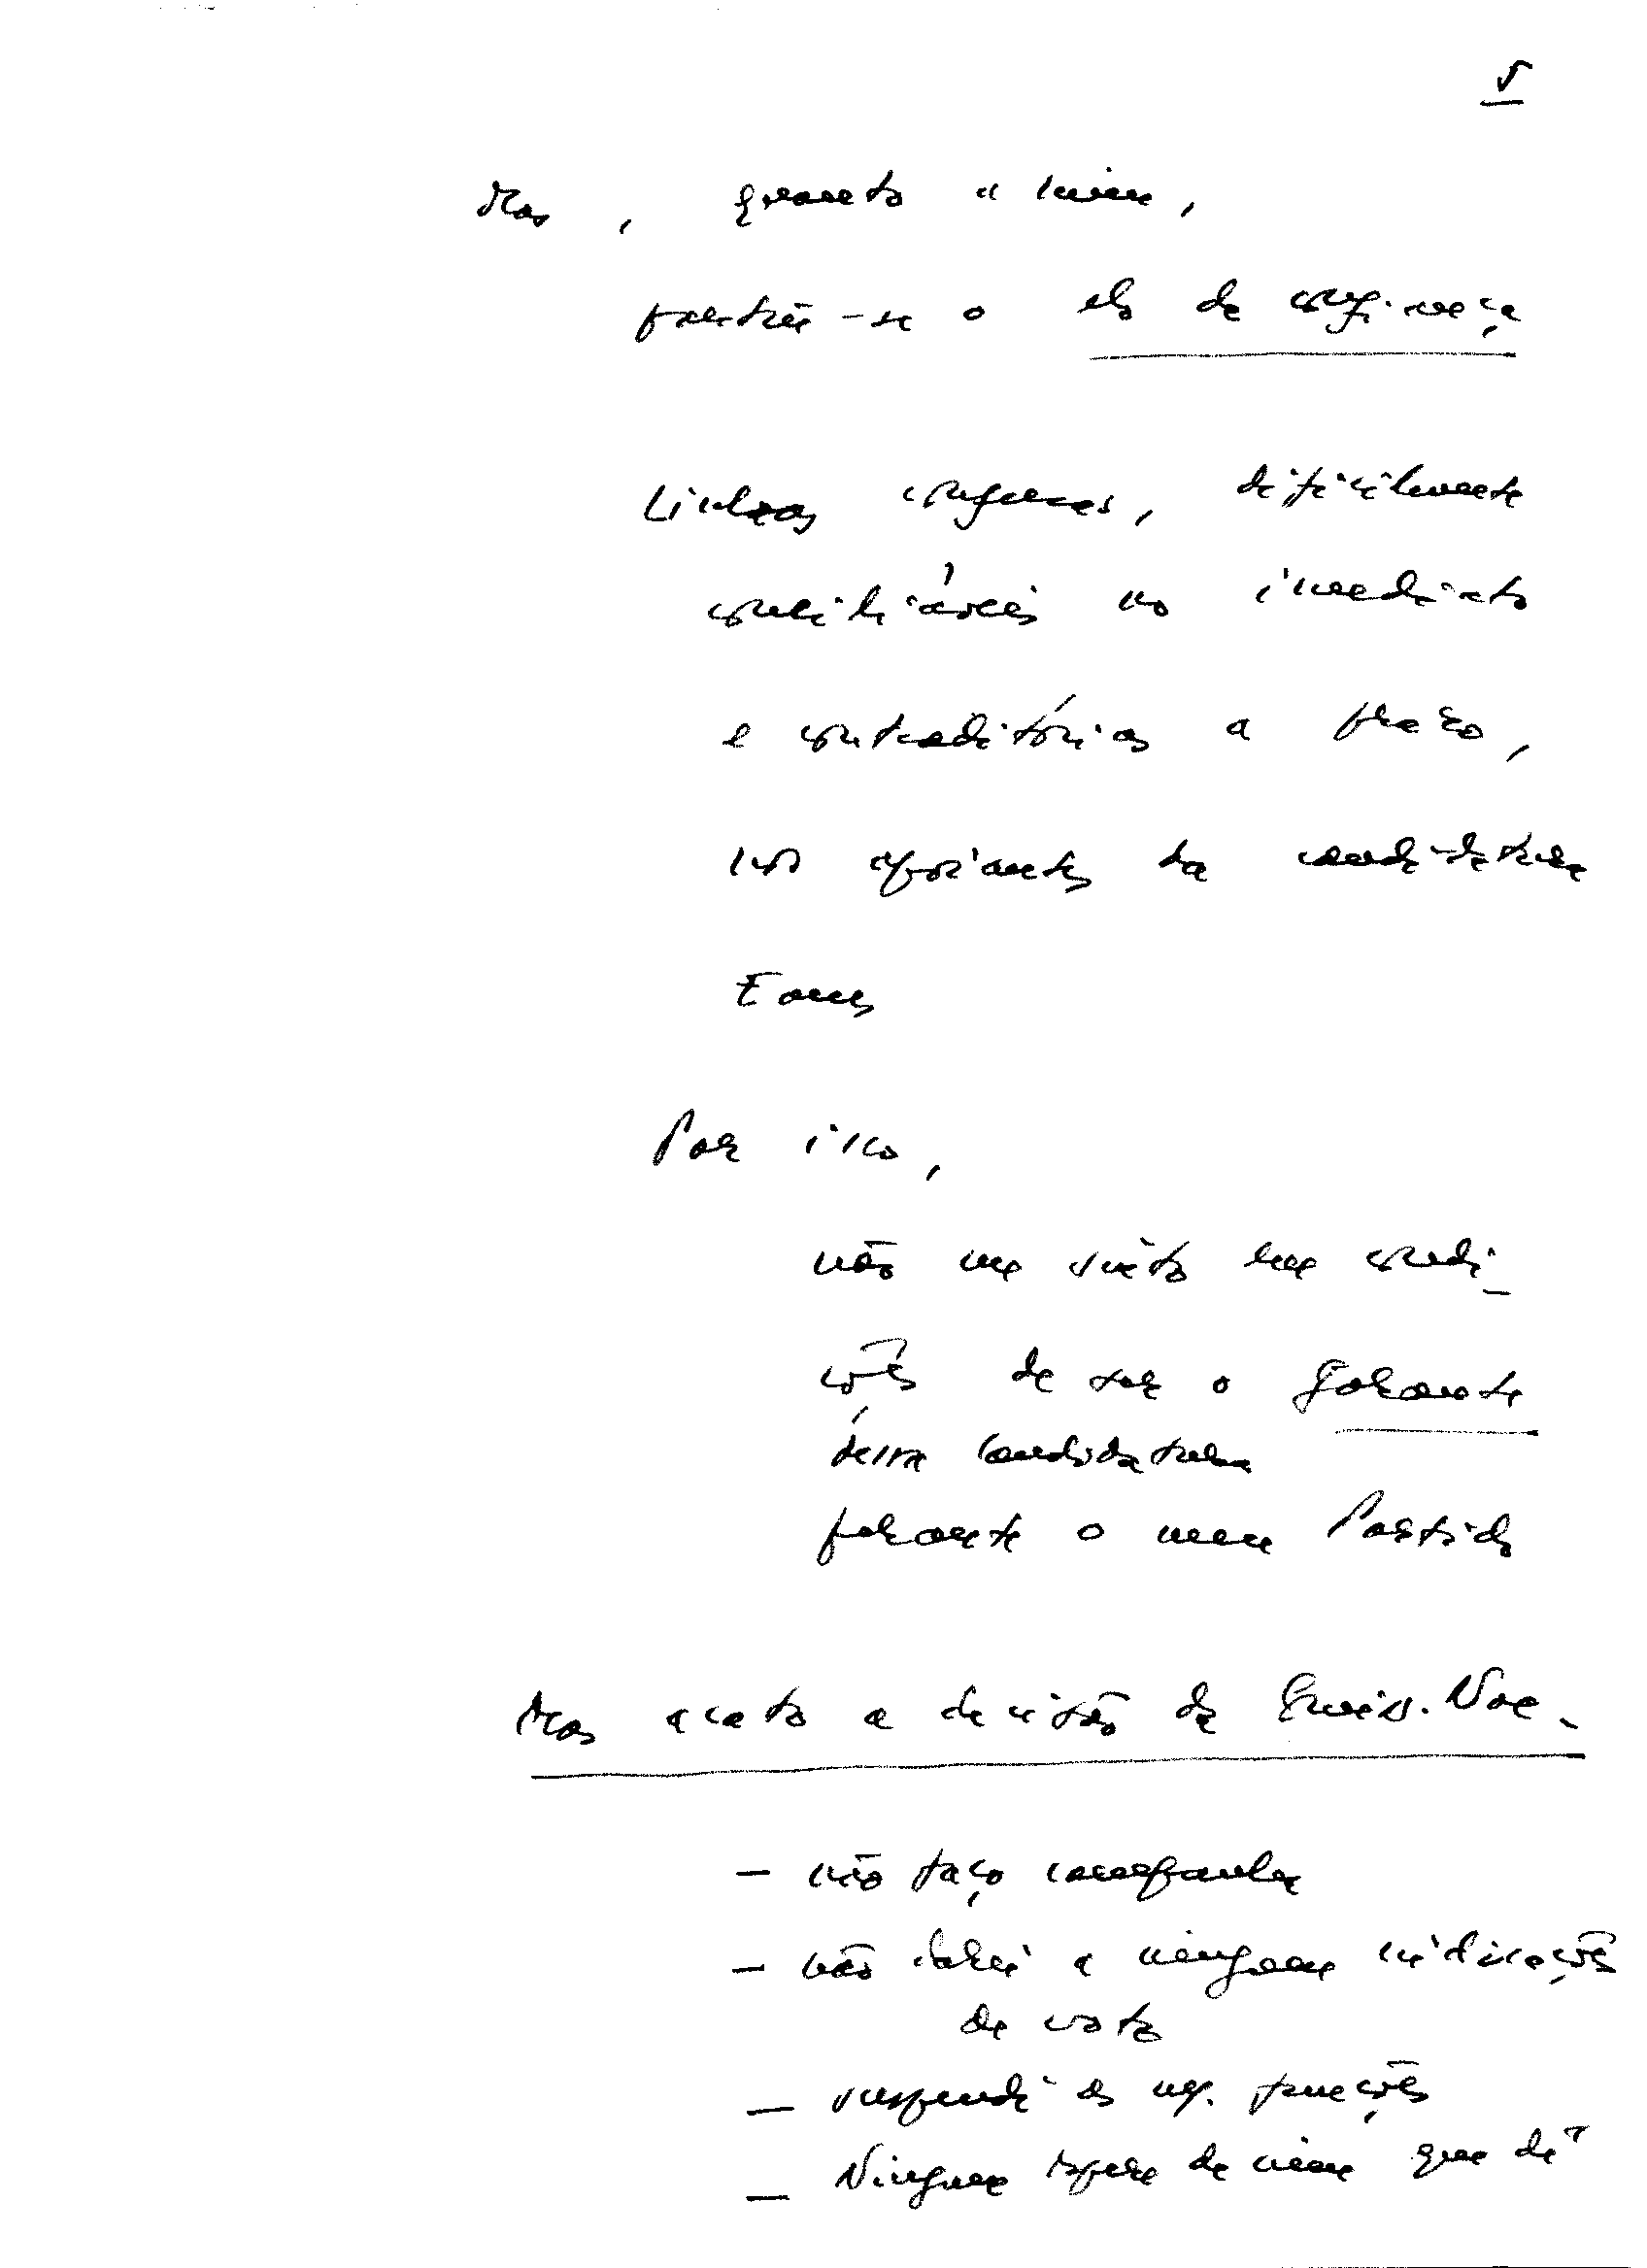 5
Mas, quanto a mim,
partiu-se o elo de confiança
Linhas confusas, dificilmente
conciliáveis no imediato
e contraditórias a prazo,
nos apoiantes da candidatura
Eanes
Por isso,
não me sinto em condi-
ções de ser o garante
dessa candidatura
perante o meu Partido
Mas acato a decisão da Comiss. Nac.
- não faço campanha
- não darei a ninguem indicações
de voto
- suspendi as m/. funções
- Ninguem espere de mim que dê